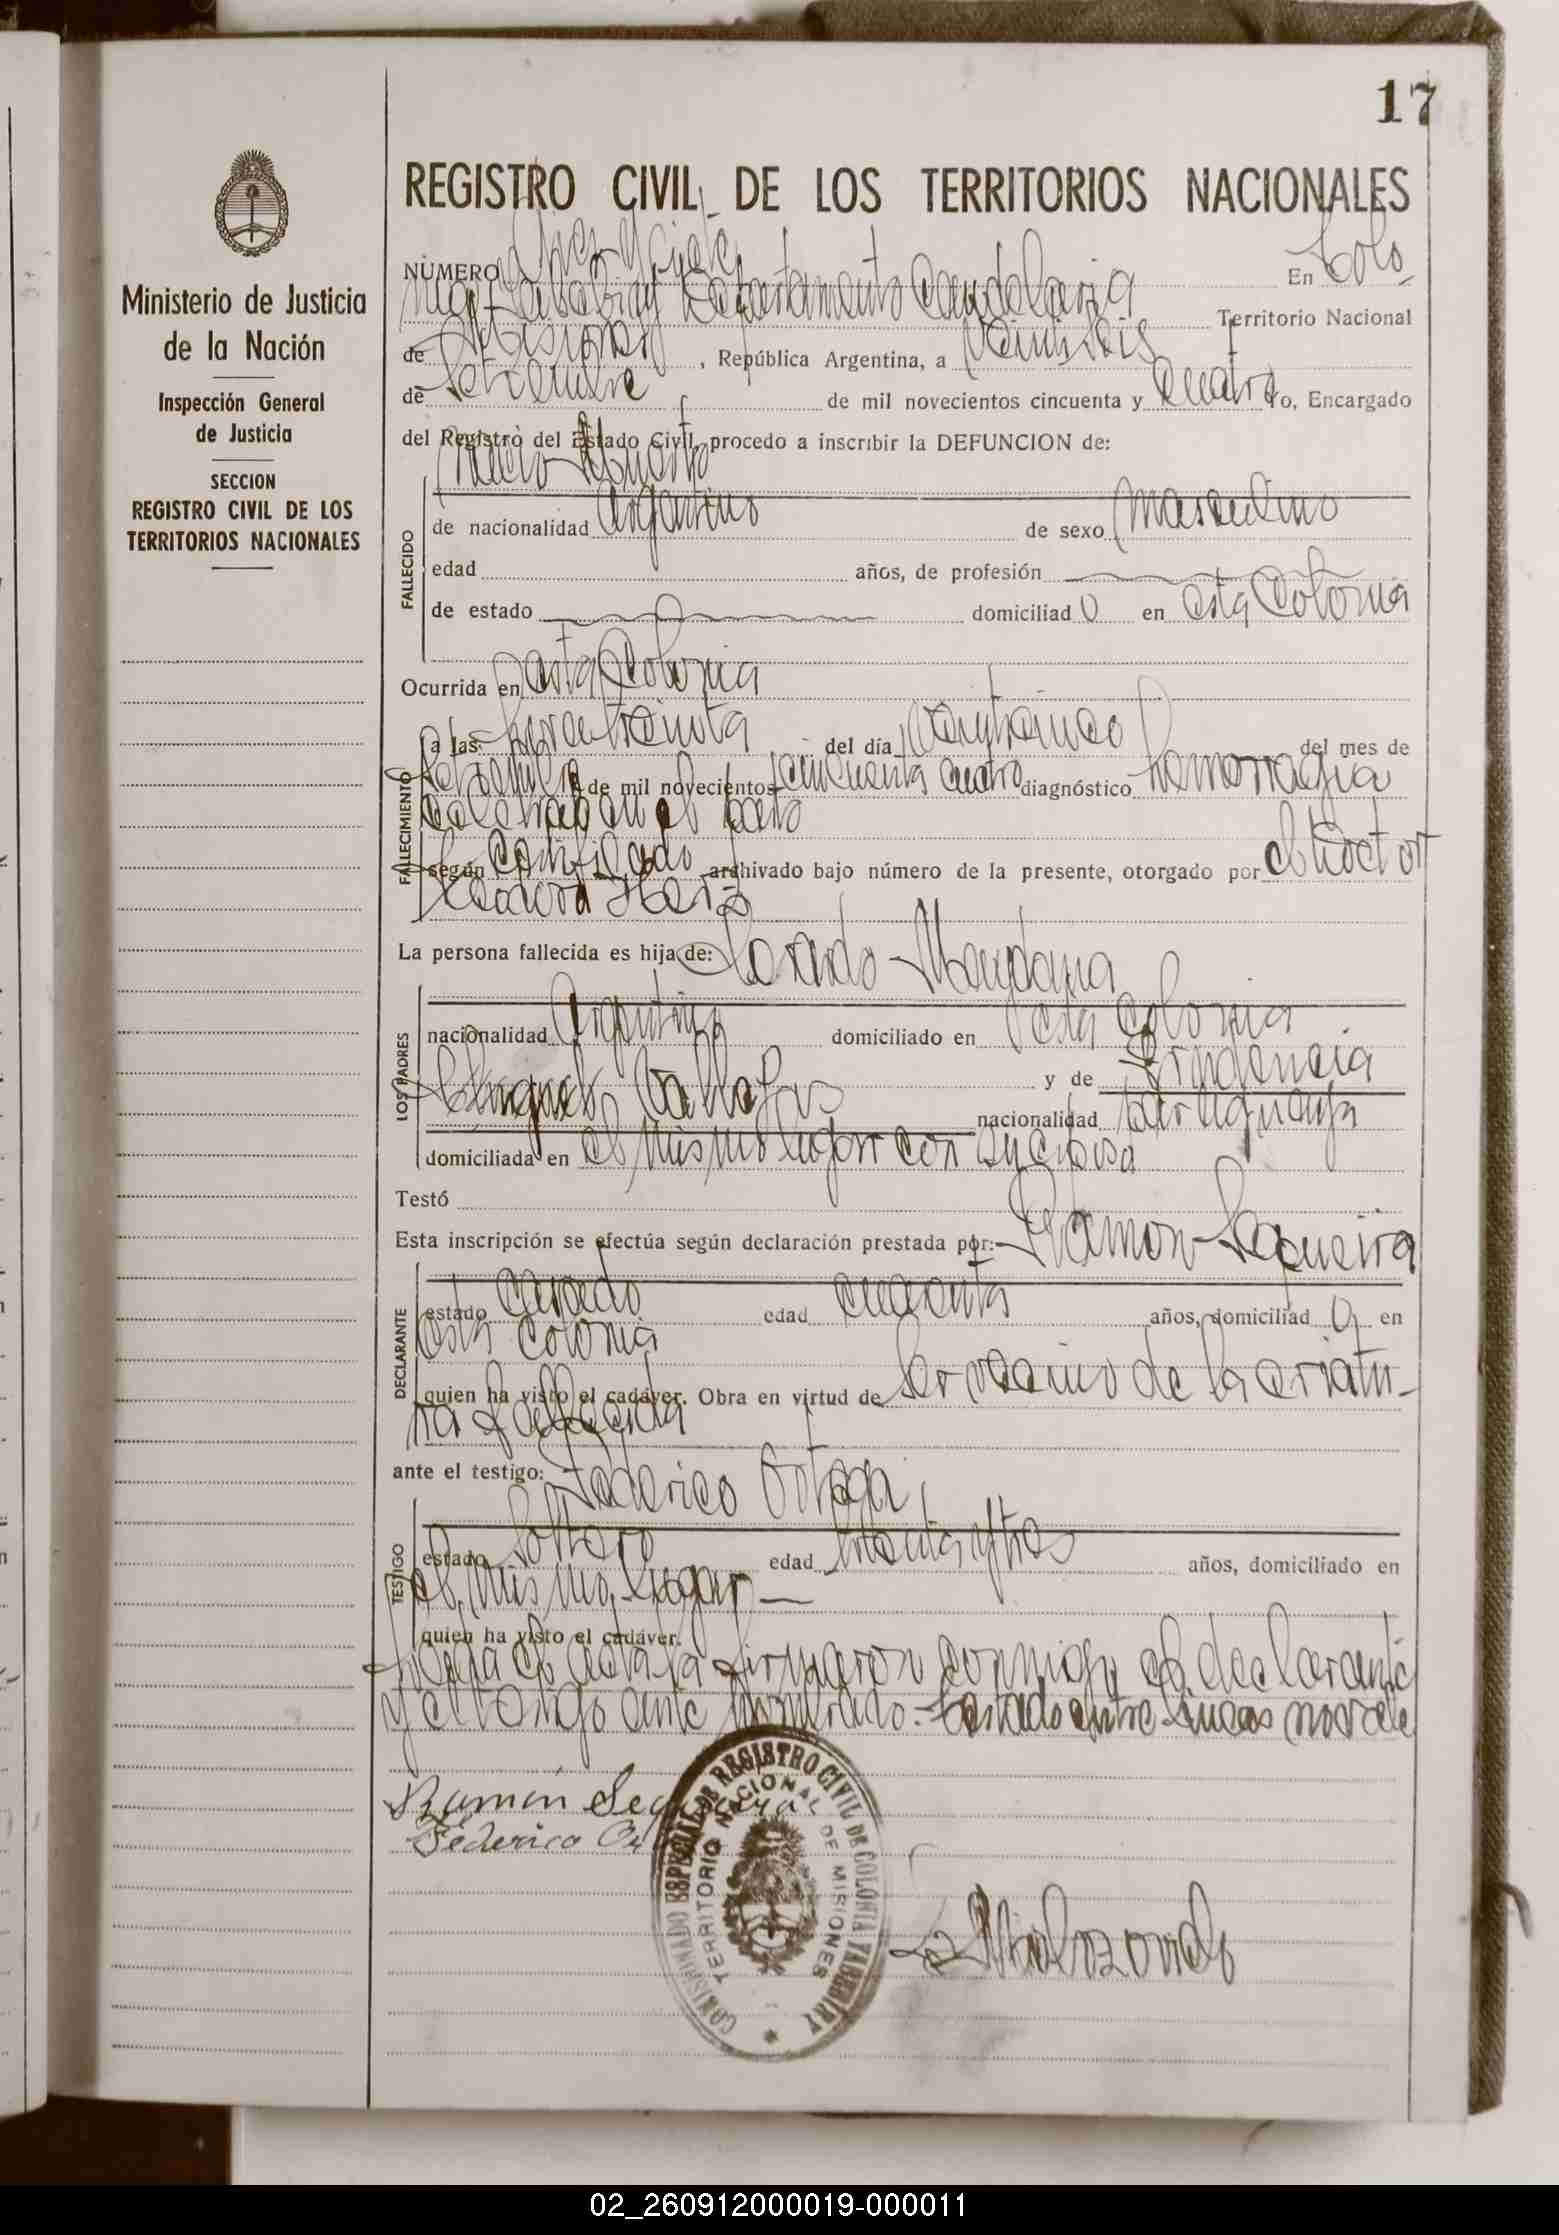 17
REGISTRO CIVIL DE LOS TERRITORIOS NACIONALES
Ministerio de Justicia
de la Nación
Inspección General
de Justicia
SECCION
REGISTRO CIVIL DE LOS
TERRITORIOS NACIONALES
NÚMERO Diez y siete En Colo-
nia Yabebiry Departamento Candelaria Territorio Nacional
de Misiones, República Argentina, a veintiseis
de Setiembre de mil novecientos cincuenta y cuatro Yo, Encargado
del Registro del Estado Civil, procedo a inscribir la DEFUNCION de:
Nacio Muerto
FALLECIDO
de nacionalidad Argentino de sexo Masculino
edad años, de profesión
de estado domiciliado en esta Colonia
Ocurrida en esta Colonia
FALLECIMIENTO
a las del día veinticinco del mes de
Setiembre de mil novecientos cincuenta cuatro diagnóstico hemorragia
cerebral en el parto
según certificado archivado bajo número de la presente, otorgado por el Doctor
La persona fallecida es hija de: Mandana
LOS PADRES
nacionalidad Argentina domiciliado en esta Colonia
y de
nacionalidad
domiciliada en el mismo lugar con su esposa
Testó
Esta inscripción se efectúa según declaración prestada por: Ramon Sequeira
DECLARANTE
estado casado edad cuarenta años, domiciliado en
esta Colonia
quien ha visto el cadáver. Obra en virtud de ser vecino de la criatu-
ra fallecida
ante el testigo: Federico Ortega
TESTIGO
estado Soltero edad y tres años, domiciliado en
el mismo lugar
quien ha visto el cadáver.
Leida el acta la firmaron conmigo el declarante
y el testigo ante nombrado.- testado entre lineas no vale
Ramón Sequeira
Federico
COMISIONADO ESPECIAL DE REGISTRO CIVIL DE COLONIA YABEBIRY
TERRITORIO NACIONAL DE MISIONES
02_260912000019-000011